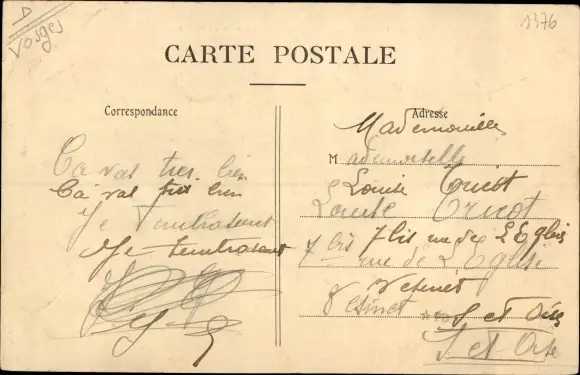 D
Vosges
1376
CARTE POSTALE
Correspondance
Adresse
Mademoiselle
Mademoiselle
Ca va tres bien
Ca va tres bien
Louise Tricot
Louise Tricot
Je
Je
7 bis rue de L'Eglise
7 bis rue de L'Eglise
Vesinet
Vesinet S et Oise
S et Oise